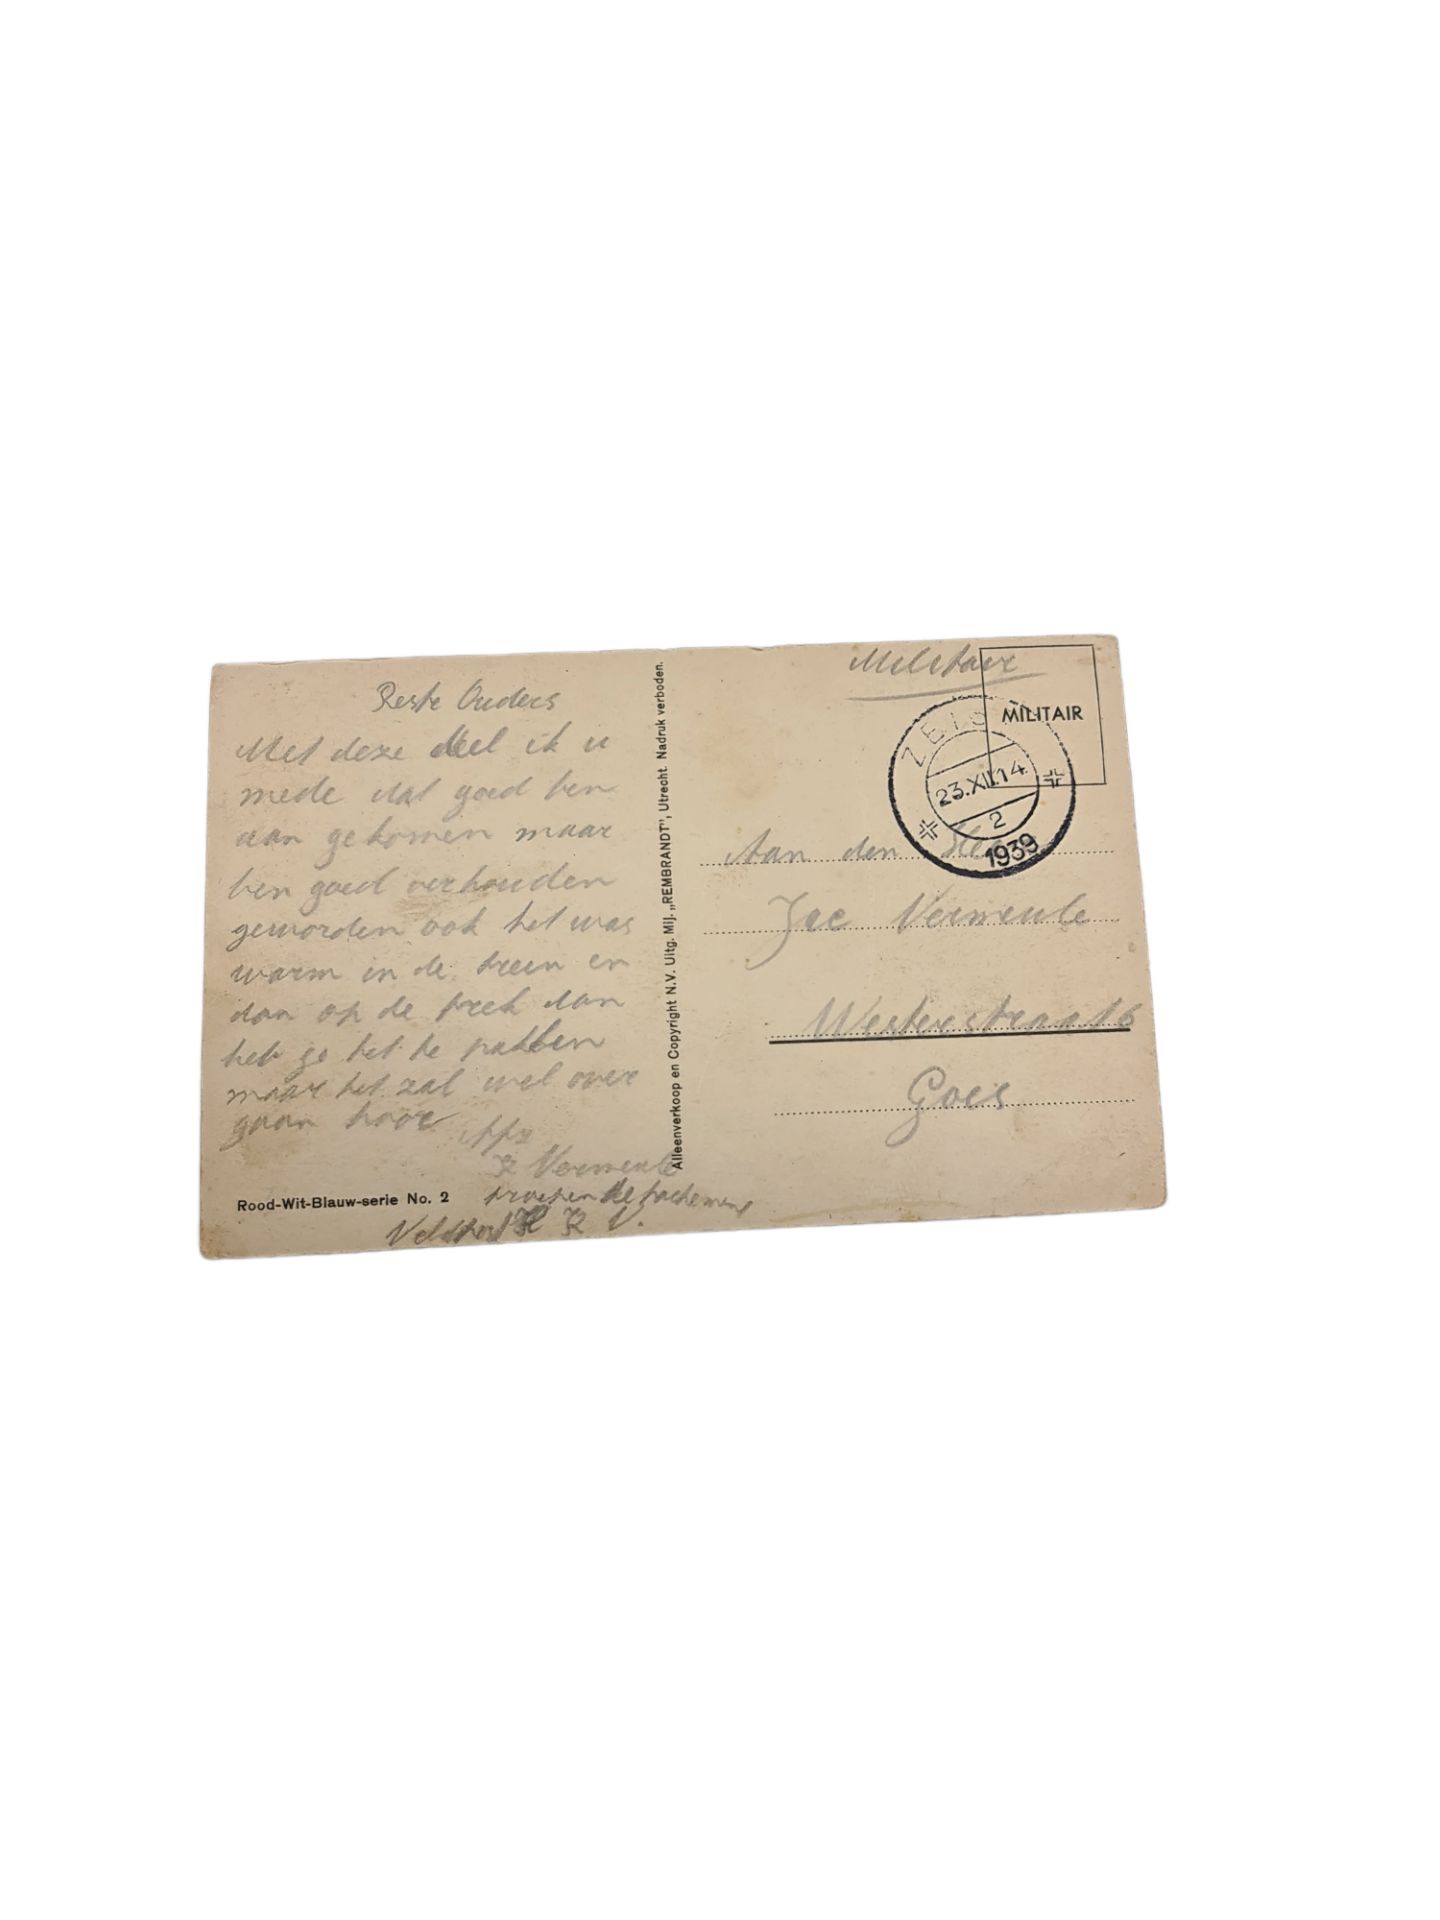 Beste Ouders
Met deze deel ik u
mede dat goed ben
aan gekomen maar
ben goed verkouden
geworden ook het was
warm in de treen en
dan op de trek dan
heb je het te pakken
maar het zal wel over
gaan hoor
Vermeule
Rood-Wit-Blauw-serie No. 2
V.
Alleenverkoop en Copyright N.V. Uitg. Mij. „REMBRANDT", Utrecht. Nadruk verboden.
Militair
MILITAIR
ZEIS
23.XII.14
2
1939
Aan den Heer
Jac Vermeule
Westerstraat 6
Goes